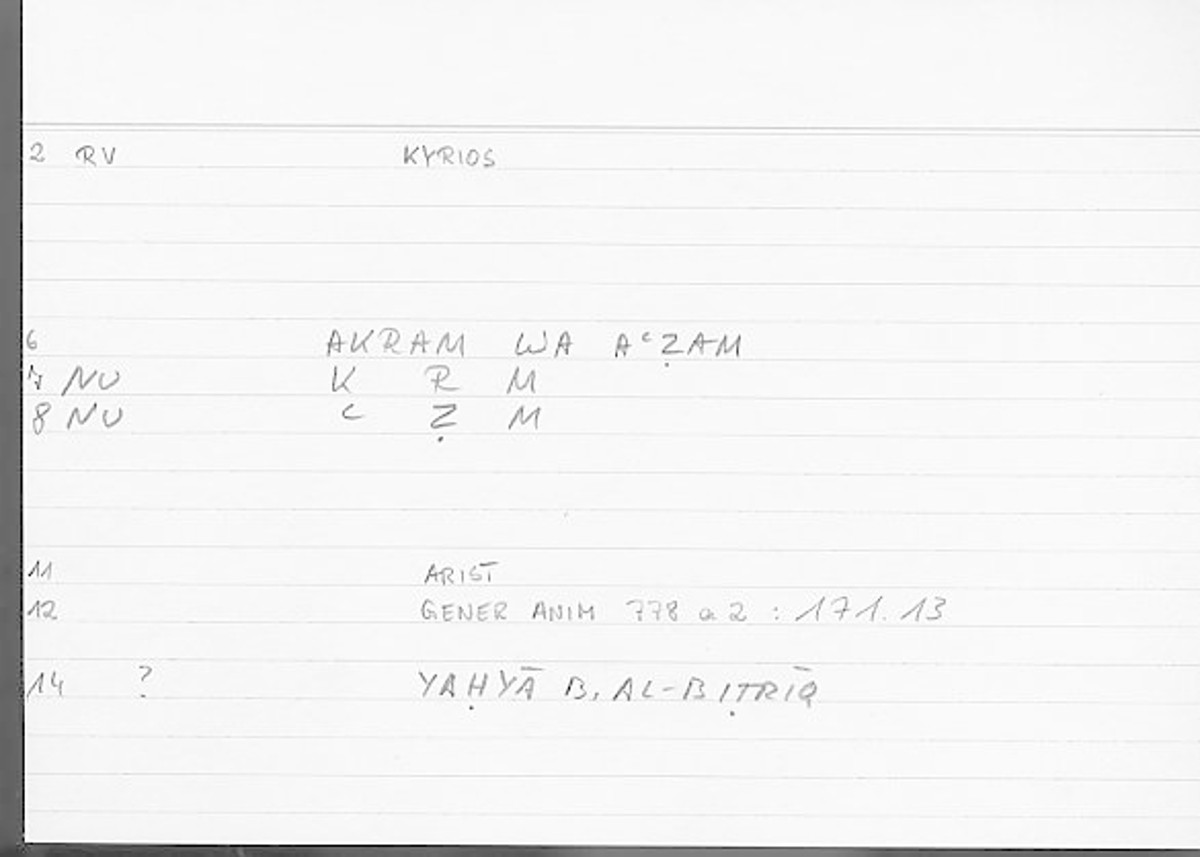 2 RV KYRIOS
6 AKRAM WA AᶜẒAM
7 NU K R M
8 NU ᶜ Ẓ M
11 ARIST
12 GENER ANIM 778 a 2 : 171.13
14 ? YAḤYĀ B. AL-BIṬRĪQ